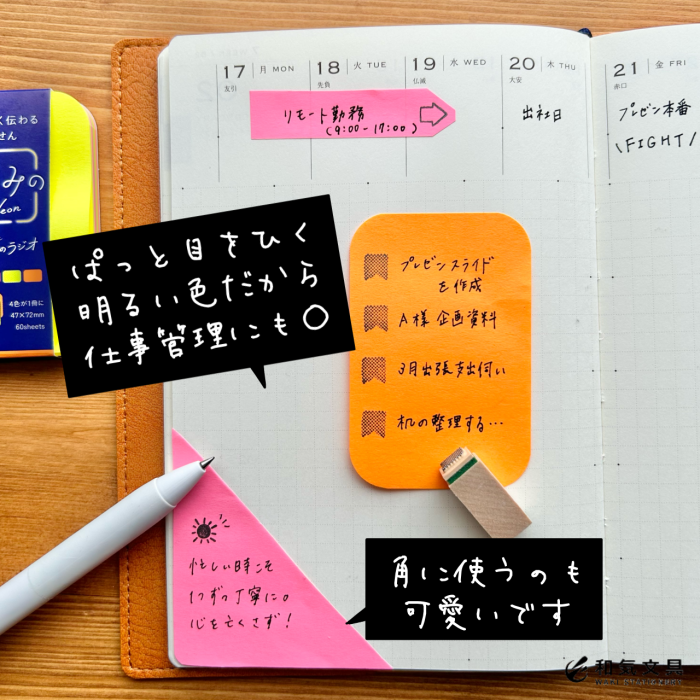 17 月 MON
友引
18 火 TUE
先負
19 水 WED
仏滅
20 木 THU
大安
21 金 FRI
赤口
リモート勤務
(9:00-17:00)
出社日
プレゼン本番
\FIGHT/
く伝わる
せん
みの
eon
のラジオ
4色が1冊に
47×72mm
60sheets
ぱっと目をひく
明るい色だから
仕事管理にも○
プレゼンスライド
を作成
A様 企画資料
3月出張支出伺い
机の整理する…
忙しい時こそ
1つずつ丁寧に。
心を亡くさず!
角に使うのも
可愛いです
和気文具